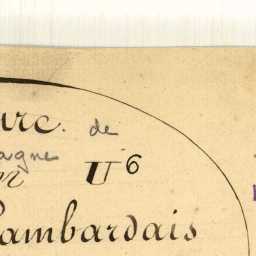 arc. de
agne
U⁶
ambardais